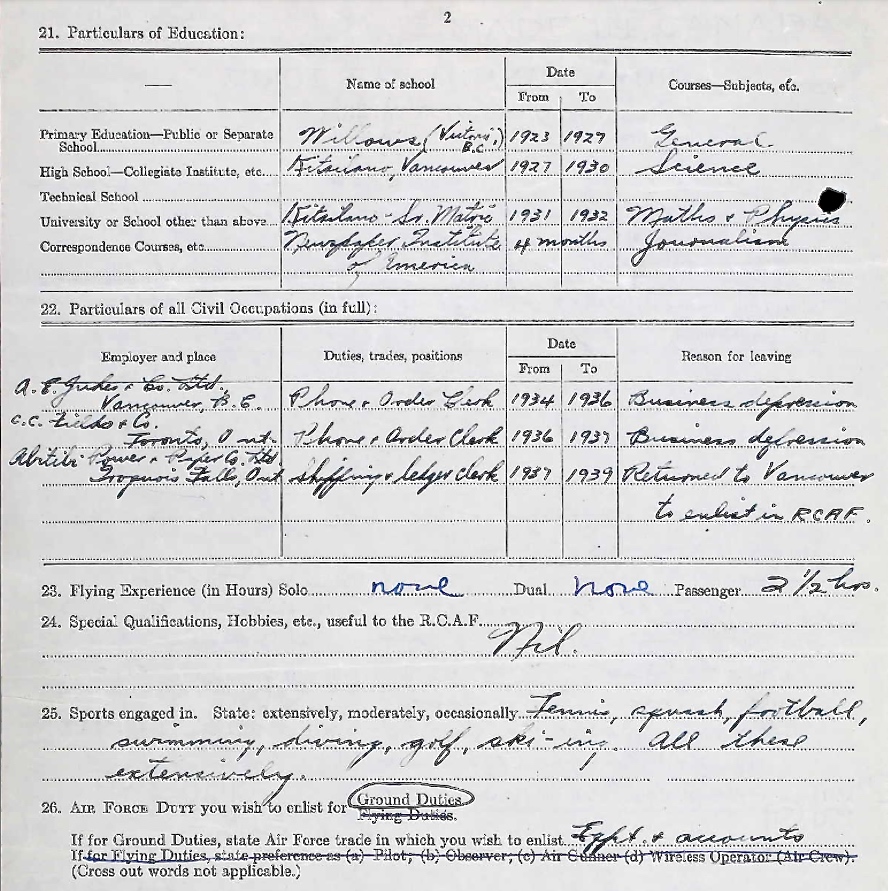 2
21. Particulars of Education:
Name of school
Date
Courses—Subjects, etc.
From To
Primary Education—Public or Separate School Willows (Victoria, B.C.) 1923 1927 General
High School—Collegiate Institute, etc. Kitsilano, Vancouver 1927 1930 Science
Technical School
University or School other than above Kitsilano - Sr. Matric 1931 1932 Maths & Physics
Correspondence Courses, etc. Newspaper Institute 4 months Journalism
of America
22. Particulars of all Civil Occupations (in full):
Employer and place
Duties, trades, positions
Date
Reason for leaving
From To
A. E. Jukes & Co. Ltd.
Vancouver, B.C. Phone & Order Clerk 1934 1936 Business depression
C.C. Fields & Co.
Toronto, Ont. Phone & Order Clerk 1936 1937 Business depression
Abitibi Power & Paper Co. Ltd
Iroquois Falls, Ont shipping & ledger clerk 1937 1939 Returned to Vancouver
to enlist in RCAF.
23. Flying Experience (in Hours) Solo none Dual None Passenger 2 1/2 hrs.
24. Special Qualifications, Hobbies, etc., useful to the R.C.A.F.
Nil.
25. Sports engaged in. State: extensively, moderately, occasionally Tennis, squash, football,
swimming, diving, golf, ski-ing. All these
extensively.
26. AIR FORCE DUTY you wish to enlist for Ground Duties
Flying Duties.
If for Ground Duties, state Air Force trade in which you wish to enlist Eqpt. & accounts
If for Flying Duties, state preference as (a) Pilot; (b) Observer; (c) Air Gunner (d) Wireless Operator (Air Crew).
(Cross out words not applicable.)